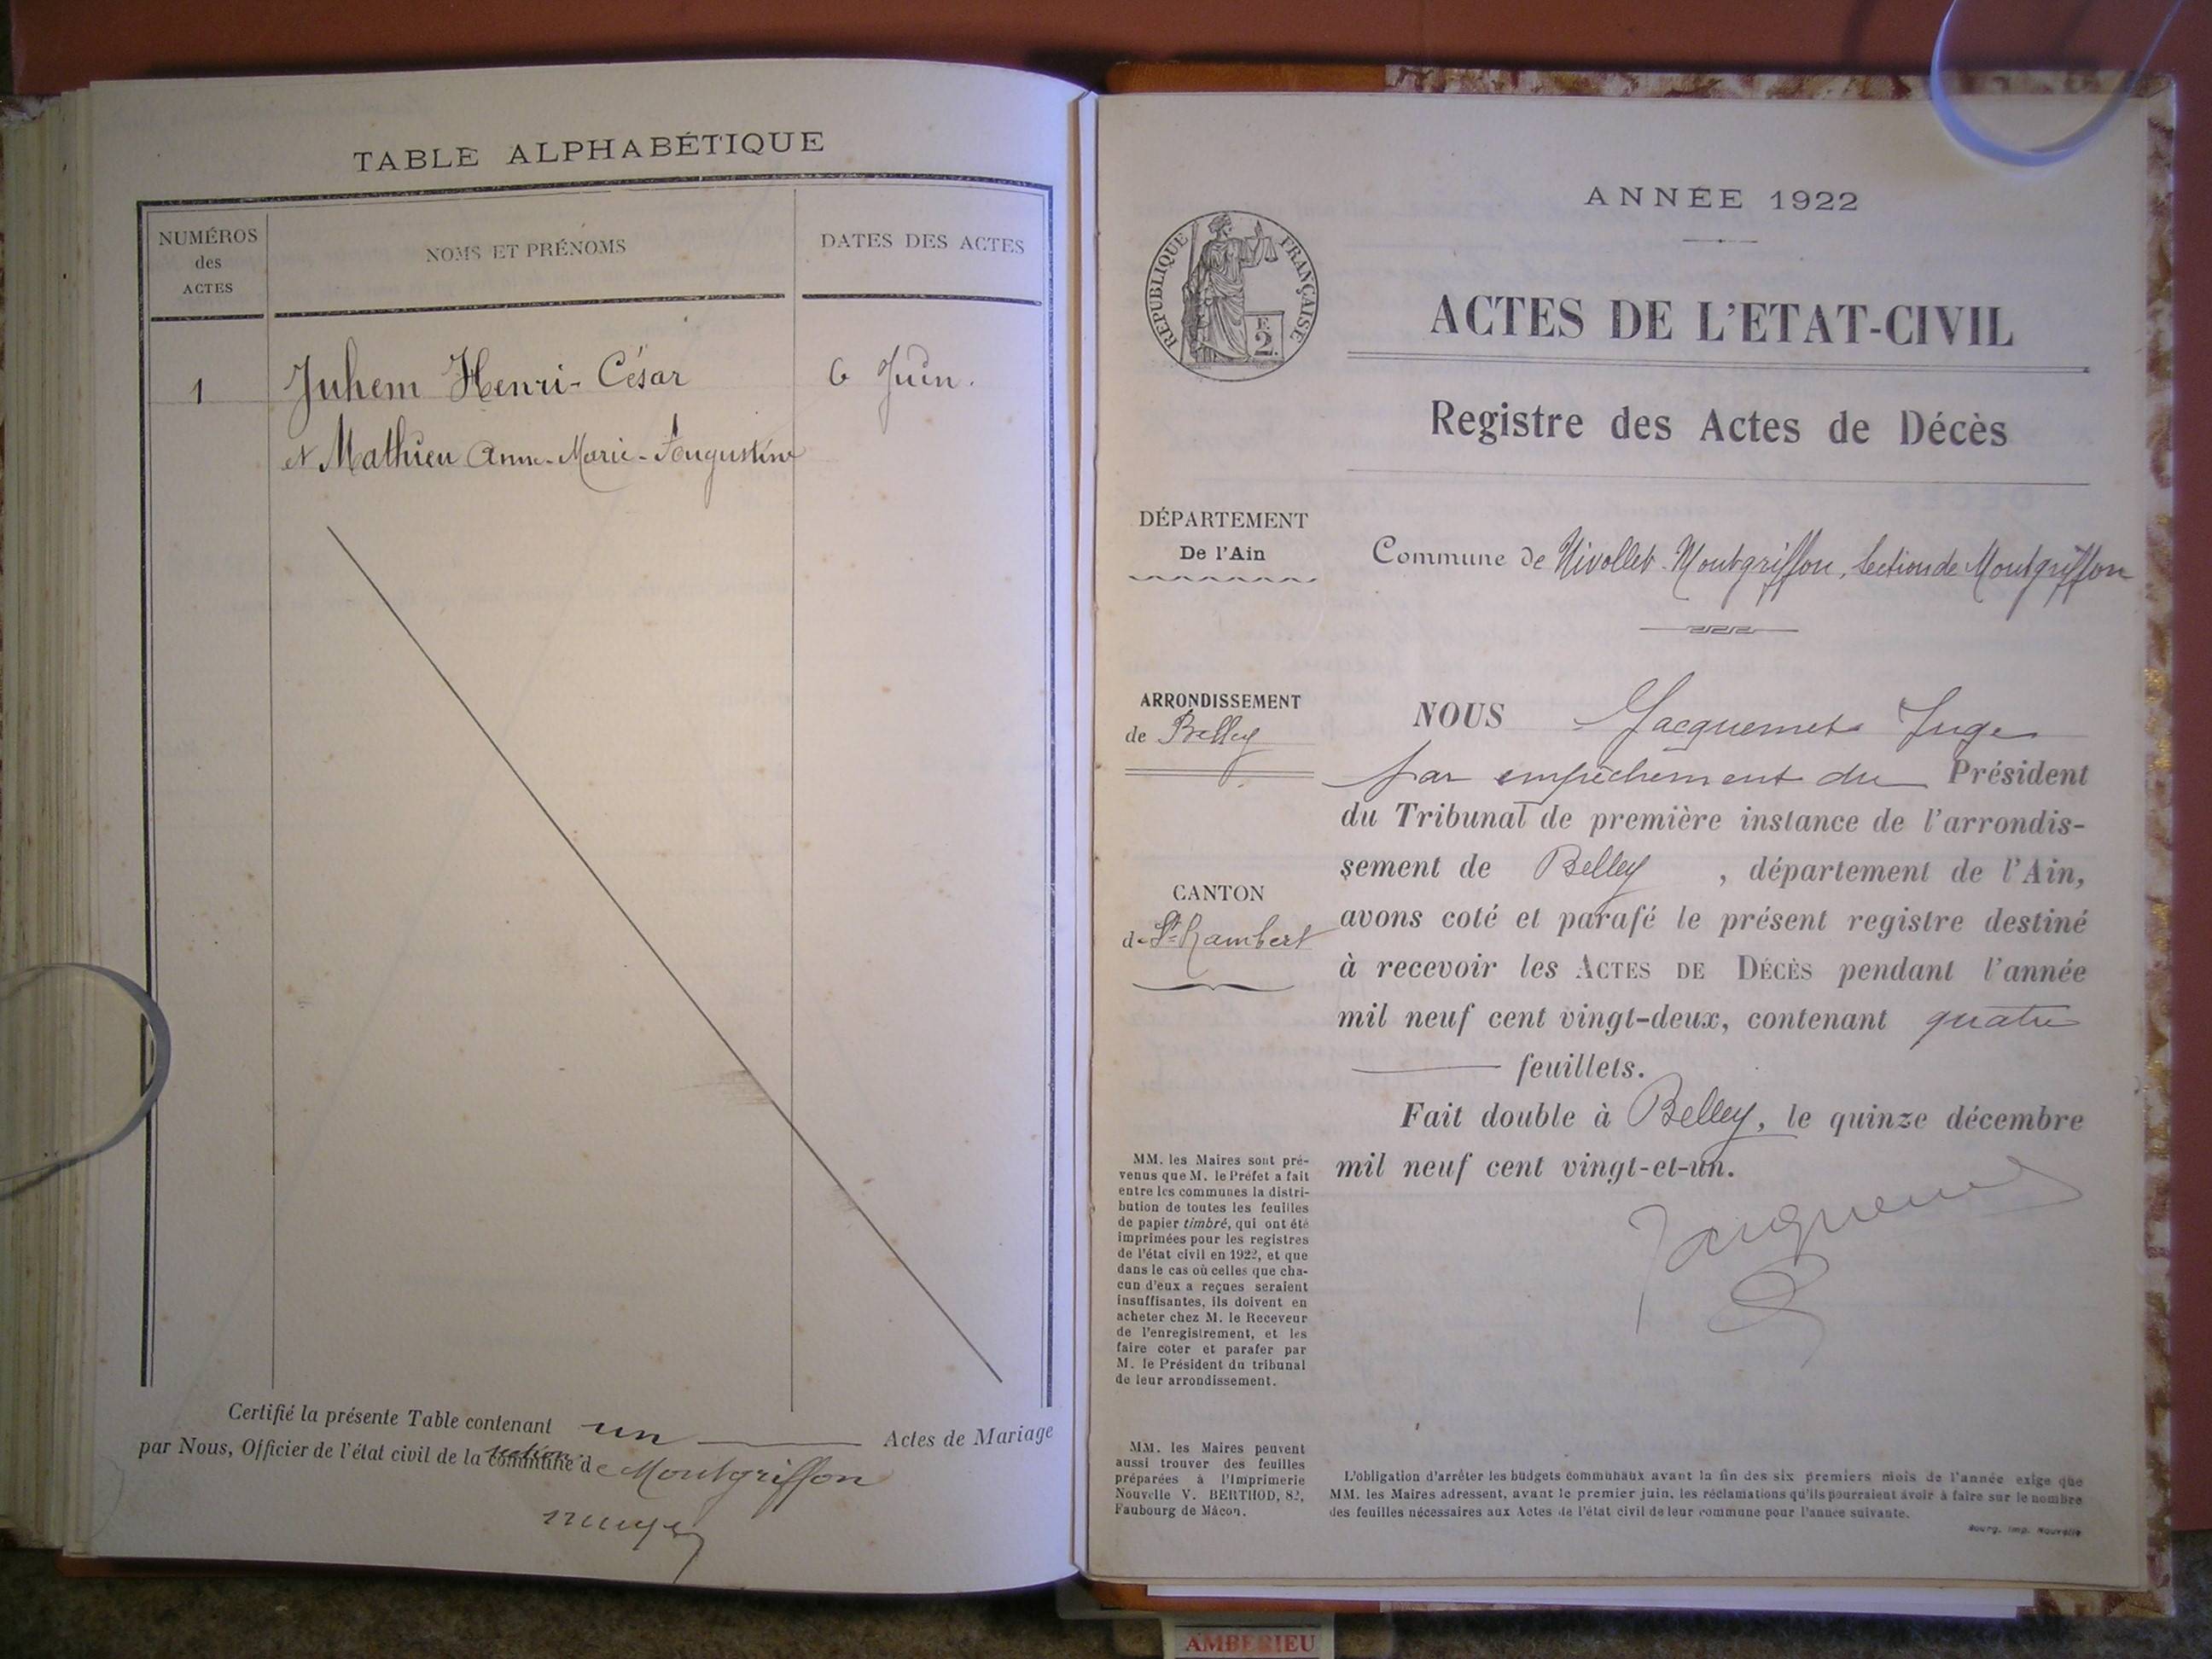 TABLE ALPHABÉTIQUE
NUMÉROS
des
ACTES
NOMS ET PRÉNOMS
DATES DES ACTES
1
Juhem Henri-César
6 Juin.
et Mathieu Anne-Marie-Augustine
Certifié la présente Table contenant un Actes de Mariage
par Nous, Officier de l'état civil de la commune section de Montgriffon
ANNÉE 1922
RÉPUBLIQUE FRANÇAISE
F.
2.
ACTES DE L'ETAT-CIVIL
Registre des Actes de Décès
DÉPARTEMENT
De l'Ain
Commune de Nivollet-Montgriffon, Section de Montgriffon
ARRONDISSEMENT
de Belley
CANTON
de St Rambert
NOUS Jacquemet Juge
par empêchement du Président
du Tribunal de première instance de l'arrondis-
sement de Belley, département de l'Ain,
avons coté et parafé le présent registre destiné
à recevoir les ACTES DE DÉCÈS pendant l'année
mil neuf cent vingt-deux, contenant quatre
feuillets.
Fait double à Belley, le quinze décembre
mil neuf cent vingt-et-un.
Jacquemet
MM. les Maires sont pré-
venus que M. le Préfet a fait
entre les communes la distri-
bution de toutes les feuilles
de papier timbré, qui ont été
imprimées pour les registres
de l'état civil en 1922, et que
dans le cas où celles que cha-
cun d'eux a reçues seraient
insuffisantes, ils doivent en
acheter chez M. le Receveur
de l'enregistrement, et les
faire coter et parafer par
M. le Président du tribunal
de leur arrondissement.
MM. les Maires peuvent
aussi trouver des feuilles
préparées à l'Imprimerie
Nouvelle V. BERTHOD, 82,
Faubourg de Mâcon.
L'obligation d'arrêter les budgets communaux avant la fin des six premiers mois de l'année exige que
MM. les Maires adressent, avant le premier juin, les réclamations qu'ils pourraient avoir à faire sur le nombre
des feuilles nécessaires aux Actes de l'état civil de leur commune pour l'année suivante.
Bourg, Imp. Nouvelle
AMBERIEU